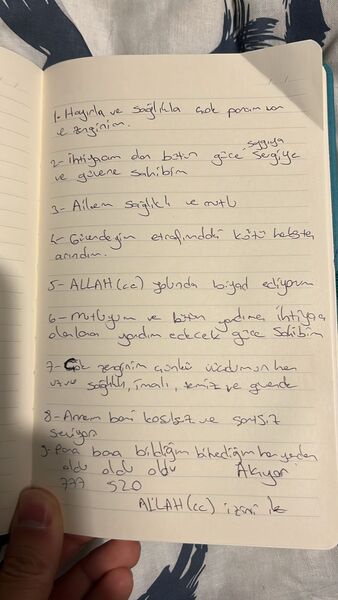 1- Hayırla ve sağlıkla çok param var
ve zenginim.
2- ihtiyacım olan bütün güce saygıya sevgiye
ve güvene sahibim
3- Ailem sağlıklı ve mutlu
4- Güvendeyim etrafımdaki kötü herkesten
arındım.
5- ALLAH(cc) yolunda ediyorum
6- Mutluyum ve bütün yardıma ihtiyacı
olanlara yardım edecek güce sahibim
7- Çok zenginim çünkü vücudumun her
sağlıklı, temiz ve güvende
8- Annem beni koşulsuz ve şartsız
seviyor
9- Para bana bildiğim bilmediğim her yerden
oldu oldu oldu Akıyor
777 520
ALLAH(cc) izni ile